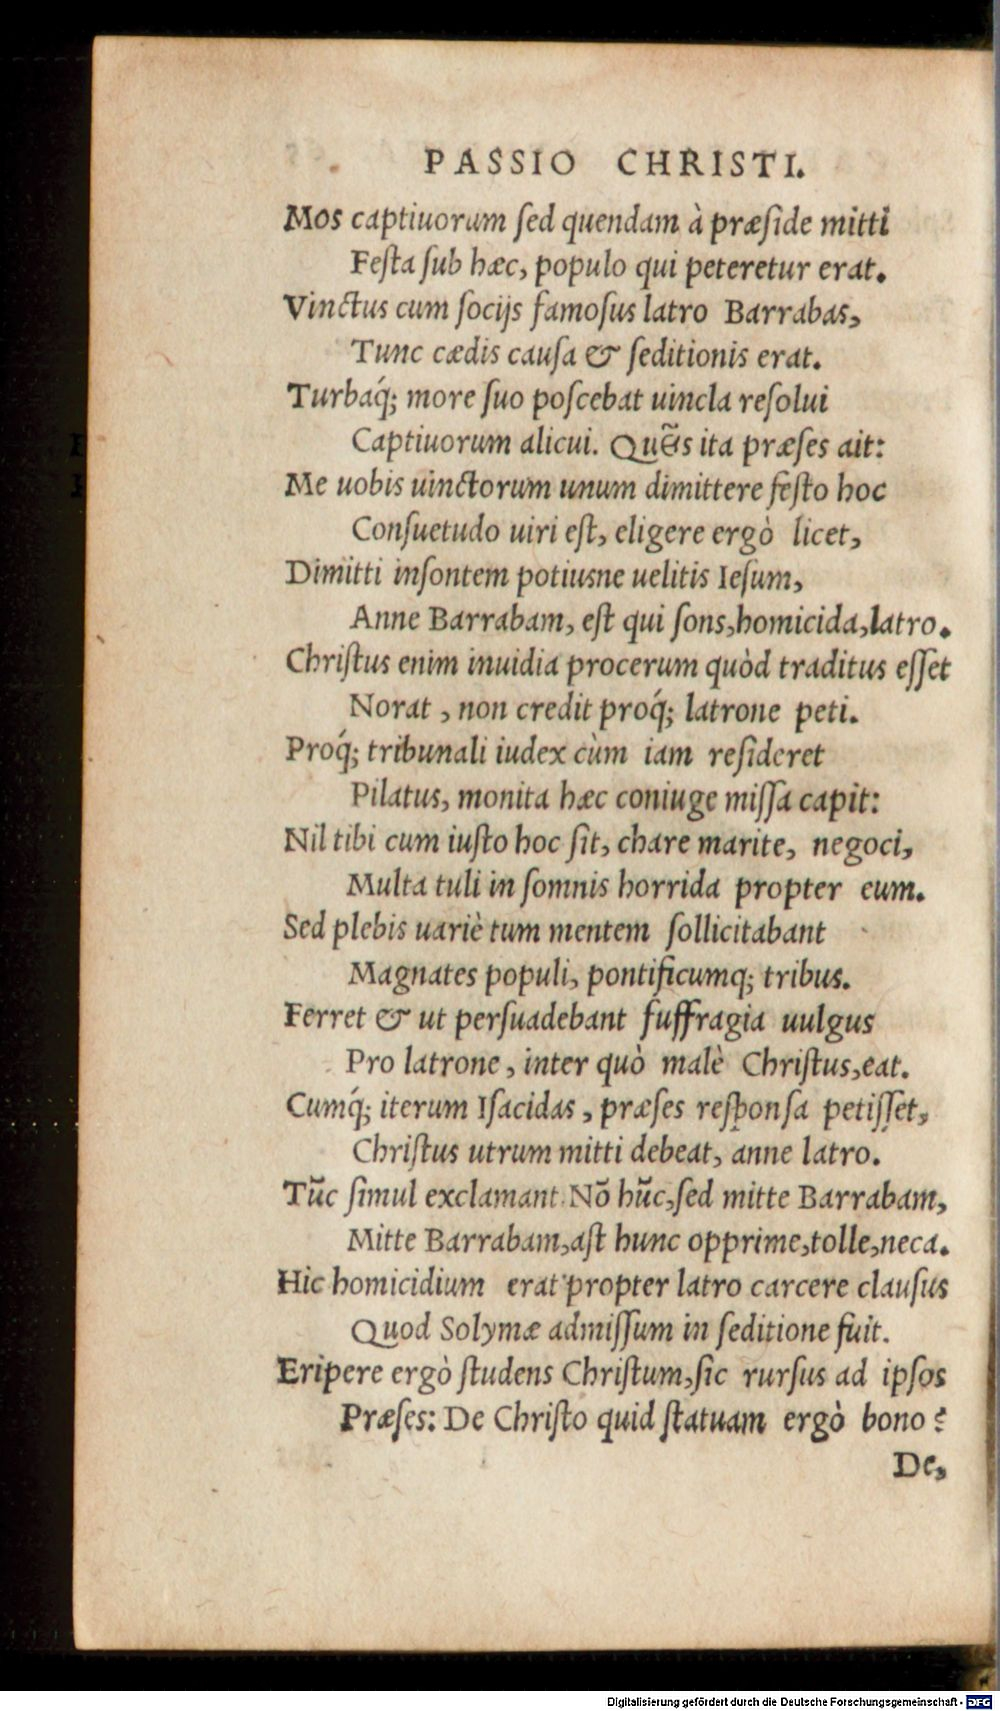 PASSIO CHRISTI.
Mos captiuorum ſed quendam à præſide mitti
Feſta ſub hæc, populo qui peteretur erat.
Vinctus cum ſocijs famoſus latro Barrabas,
Tunc cædis cauſa & ſeditionis erat.
Turbaq́; more ſuo poſcebat uincla reſolui
Captiuorum alicui. Quẽis ita præſes ait:
Me uobis uinctorum unum dimittere feſto hoc
Conſuetudo uiri eſt, eligere ergò licet,
Dimitti inſontem potiusne uelitis Ieſum,
Anne Barrabam, eſt qui ſons,homicida,latro.
Chriſtus enim inuidia procerum quòd traditus eſſet
Norat , non credit proq́; latrone peti.
Proq́; tribunali iudex cùm iam reſideret
Pilatus, monita hæc coniuge miſſa capit:
Nil tibi cum iuſto hoc ſit, chare marite, negoci,
Multa tuli in ſomnis horrida propter eum.
Sed plebis uariè tum mentem ſollicitabant
Magnates populi, pontificumq; tribus.
Ferret & ut perſuadebant ſuffragia uulgus
Pro latrone , inter quò malè Chriſtus,eat.
Cumq́; iterum Iſacidas , præſes reſponſa petiſſet,
Chriſtus utrum mitti debeat, anne latro.
Tũc ſimul exclamant Nõ hũc,ſed mitte Barrabam,
Mitte Barrabam,aſt hunc opprime,tolle,neca.
Hic homicidium erat propter latro carcere clauſus
Quod Solymæ admiſſum in ſeditione fuit.
Eripere ergò ſtudens Chriſtum,ſic rurſus ad ipſos
Præſes: De Chriſto quid ſtatuam ergò bono ?
De,
Digitalisierung gefördert durch die Deutsche Forschungsgemeinschaft - DFG